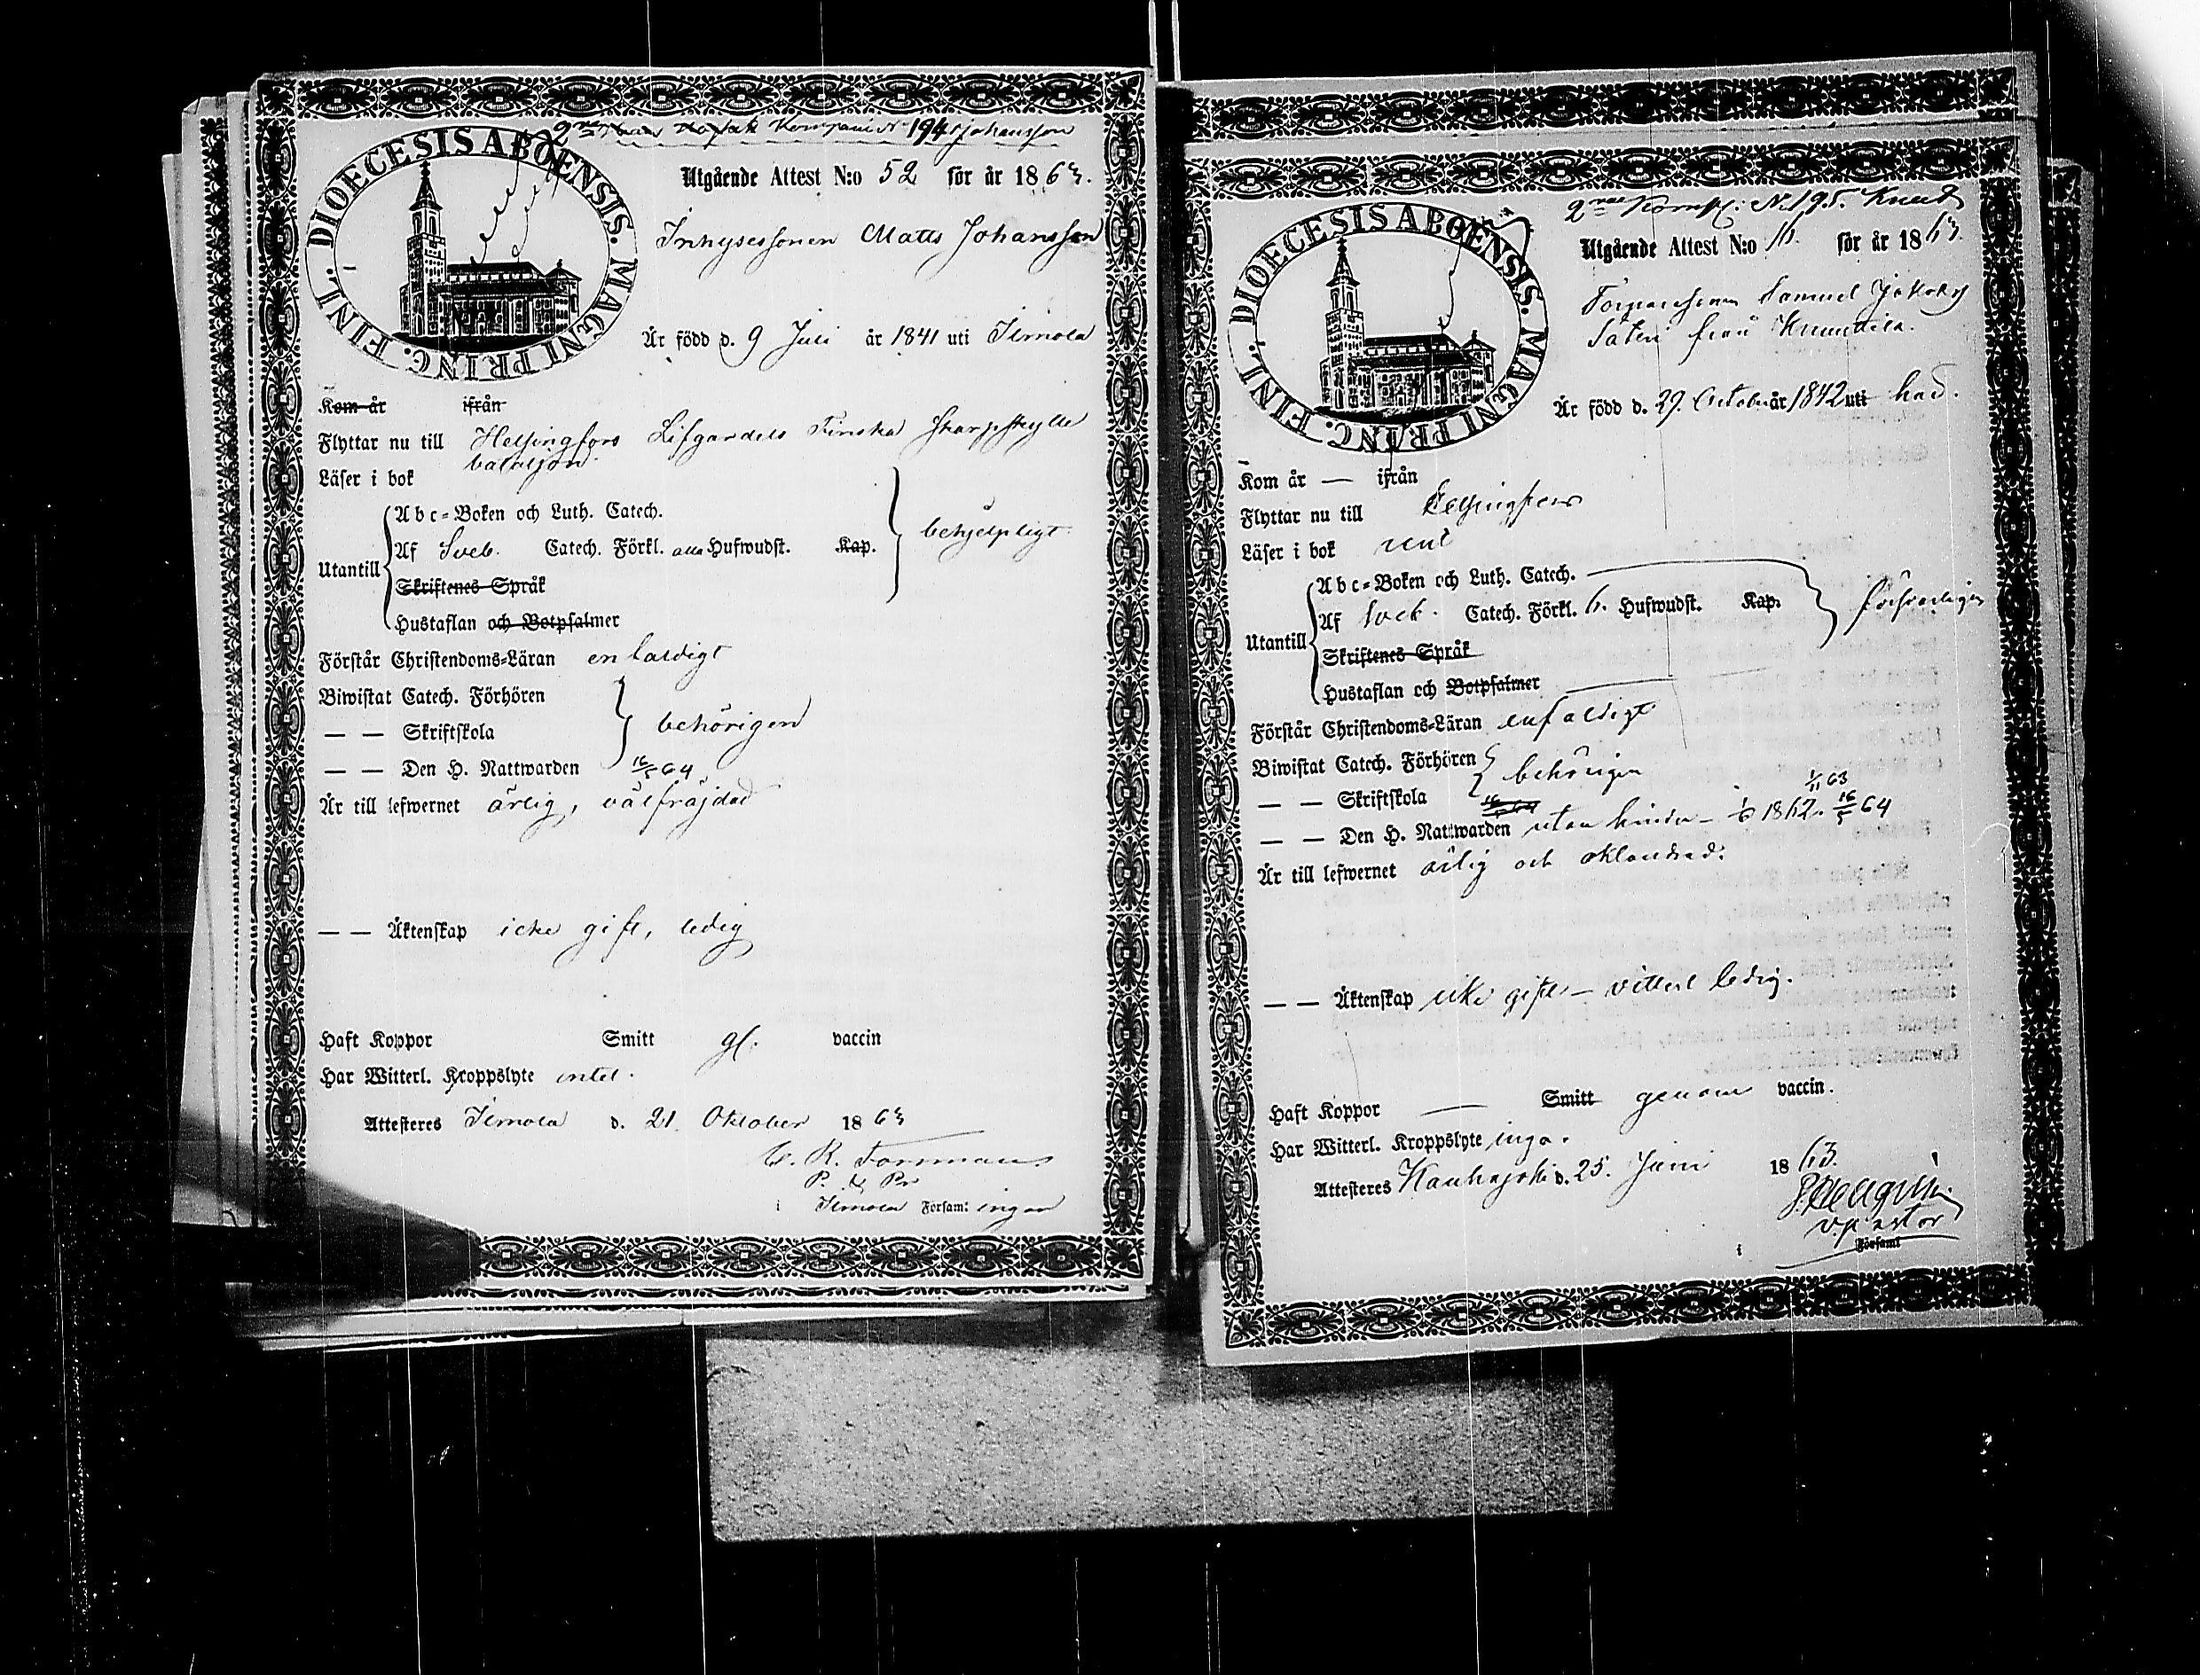 2ne Kompani No 194 Johansson
DIOECESIS ABOENSIS. MAGNI PRINC. FINL.
Utgående Attest N:o 52 för år 1863.
Inhysessonen Matts Johansson
Är född d. 9 Juli år 1841 uti Ilmola
Kom år ifrån
Flyttar nu till Helsingfors Lifgardets Finska Skarpskytte
bataljon.
Läser i bok
Utantill
Abc-Boken och Luth. Catech.
Af Sveb. Catech. Förkl. alla Hufwudst. Kap.
behjelpligt
Skriftenes Språk
Hustaflan och Botpsalmer
Förstår Christendoms-Läran enfaldigt
Biwistat Catech. Förhören
— — Skriftskola
behörigen
— — Den H. Nattwarden 16/5 64
Är till lefwernet ärlig, välfräjdad
— — Äktenskap icke gift, ledig
Haft Koppor Smitt gl. vaccin
Har Witterl. Kroppslyte intet.
Attesteres Ilmola d. 21 Oktober 1863
C. R. Forsman
P. & Pr
i Ilmola Forsaml ingar
2nee Komp: N. 195. Knuut
DIOECESIS ABOENSIS. MAGNI PRINC. FINL.
Utgående Attest N:o 16. för år 1863.
Torparesonen Samuel Jakobss
Såteri från Knuuttila.
Är född d. 29. October år 1842 uti härst.
Kom år — ifrån
Flyttar nu till Helsingfors
Läser i bok rent
Utantill
Abc-Boken och Luth. Catech.
Af Sveb. Catech. Förkl. 6. Hufwudst. Kap.
försvarligen
Skriftenes Språk
Hustaflan och Botpsalmer
Förstår Christendoms-Läran enfaldigt
Biwistat Catech. Förhören
behörigen
— — Skriftskola
1/11 63
— — Den H. Nattwarden utan hinder 1862. 16/5 64
Är till lefwernet ärlig och oklandrad.
— — Äktenskap icke gift — vitterl. ledig.
Haft Koppor — Smitt genom vaccin.
Har Witterl. Kroppslyte inga.
Attesteres Kauhajoki d. 25. Juni 1863.
v.pastor
i Församl